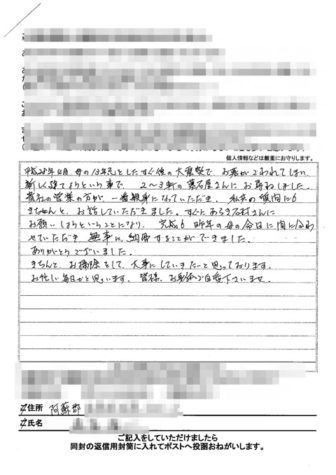 個人情報などは厳重にお守りします。
平成28年4月 母の13年忌としたすぐ後の大震災で お墓がこわれてしまい
新しく建てようという事で 2〜3軒の墓石屋さんにお尋ねしました。
貴社の営業の方が 一番親身になっていただき、私共の質問にも
きちんと、お話していただきました。すぐに
お願いしようということになり、完成も 昨年の母の命日に間に合わ
せていただき 無事に納骨することができました。
ありがとうございました。
きちんと、お掃除をして、大事にしていきたいと思っております。
お忙しい毎日かと思います、皆様、お身体ご自愛下さいませ。
ご住所 阿蘇郡
ご氏名
ご記入をしていただけましたら
同封の返信用封筒に入れてポストへ投函おねがいします。